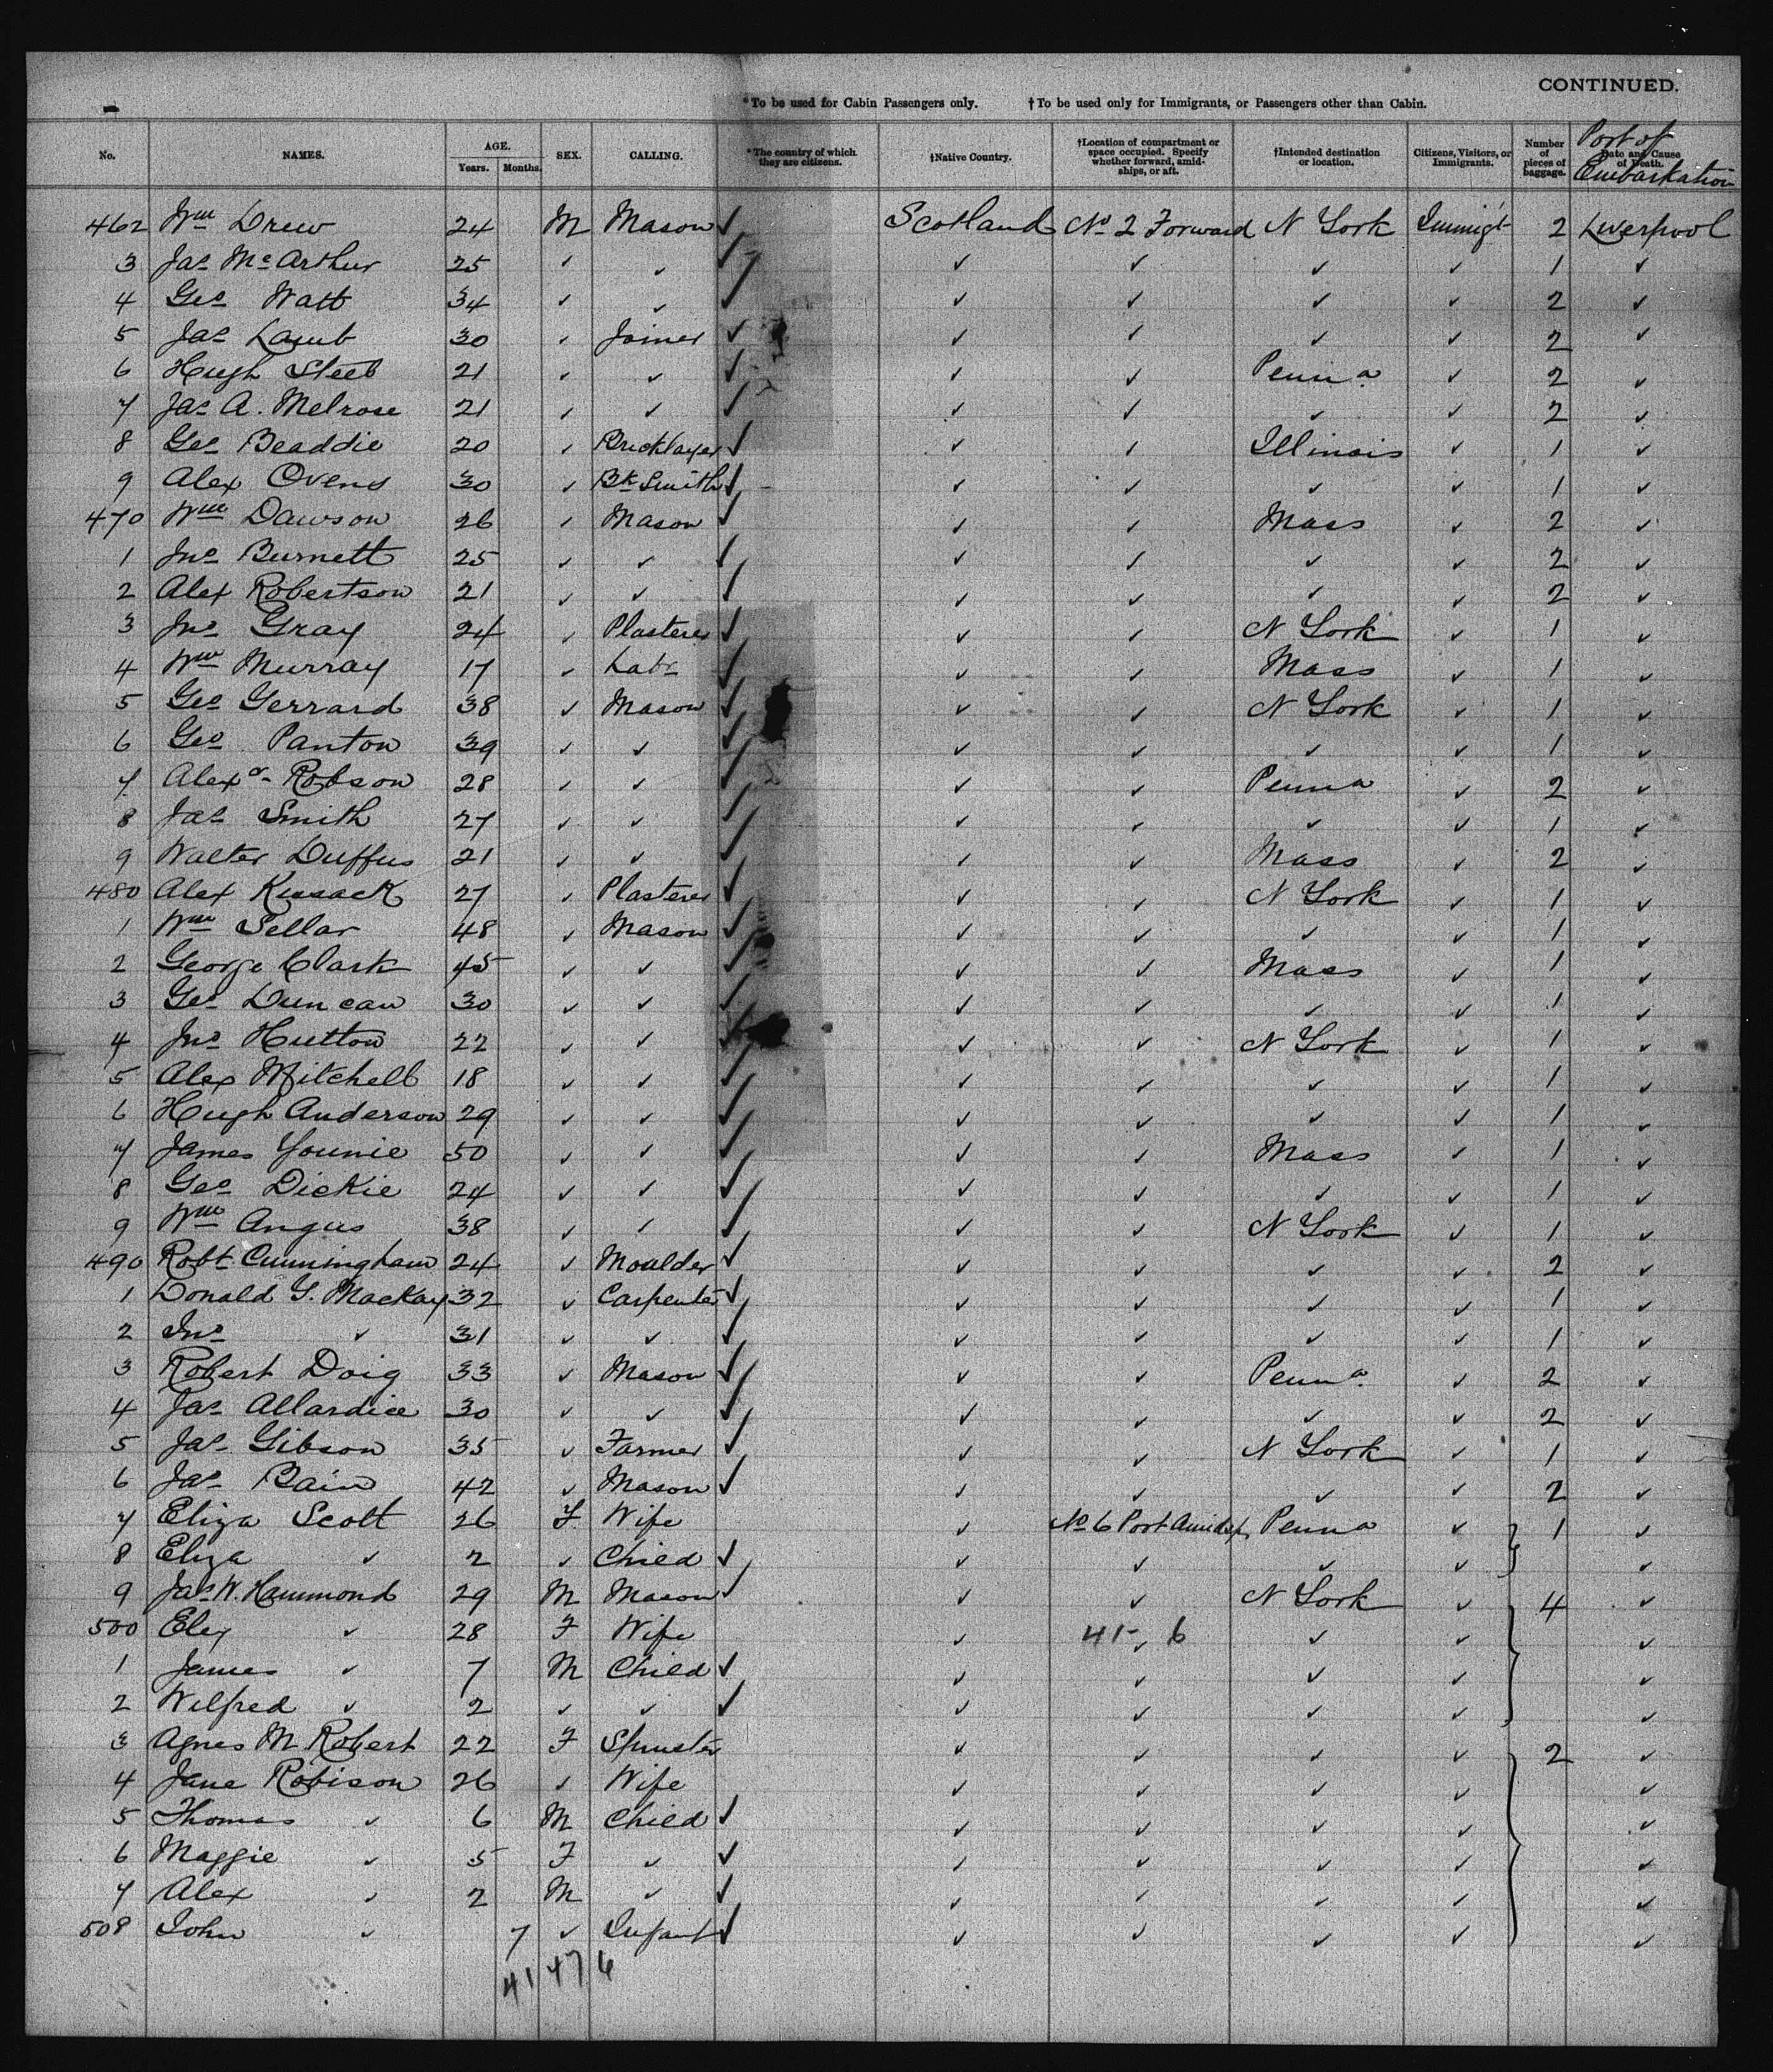 CONTINUED.
*To be used for Cabin Passengers only. †To be used only for Immigrants, or Passengers other than Cabin.
No. NAMES. AGE. Years. Months. SEX. CALLING. *The country of which they are citizens. †Native Country. †Location of compartment or space occupied. Specify whether forward, amid-ships, or aft. †Intended destination or location. Citizens, Visitors, or Immigrants. Number of pieces of baggage. Date and Cause of Death. Port of Embarkation
462 Wm Drew 24 M Mason ✓ Scotland No 2 Forward N York Immigt 2 Liverpool
3 Jas McArthur 25 ✓ ✓ ✓ ✓ ✓ ✓ ✓ 1 ✓
4 Geo Watt 34 ✓ ✓ ✓ ✓ ✓ ✓ ✓ 2 ✓
5 Jas Lamb 30 ✓ Joiner ✓ ✓ ✓ ✓ ✓ 2 ✓
6 Hugh Steel 21 ✓ ✓ ✓ ✓ ✓ Penna ✓ 2 ✓
7 Jas A. Melrose 21 ✓ ✓ ✓ ✓ ✓ ✓ ✓ 2 ✓
8 Geo Beaddie 20 ✓ Bricklayer ✓ ✓ ✓ Illinois ✓ 1 ✓
9 Alex Ovens 30 ✓ Bk Smith ✓ ✓ ✓ ✓ ✓ 1 ✓
470 Wm Dawson 26 ✓ Mason ✓ ✓ ✓ Mass ✓ 2 ✓
1 Jno Burnett 25 ✓ ✓ ✓ ✓ ✓ ✓ ✓ 2 ✓
2 Alex Robertson 21 ✓ ✓ ✓ ✓ ✓ ✓ ✓ 2 ✓
3 Jno Gray 24 ✓ Plasterer ✓ ✓ ✓ N York ✓ 1 ✓
4 Wm Murray 17 ✓ Labr ✓ ✓ ✓ Mass ✓ 1 ✓
5 Geo Gerrard 38 ✓ Mason ✓ ✓ ✓ N York ✓ 1 ✓
6 Geo Panton 39 ✓ ✓ ✓ ✓ ✓ ✓ ✓ 1 ✓
7 Alexr Robson 28 ✓ ✓ ✓ ✓ ✓ Penna ✓ 2 ✓
8 Jas Smith 27 ✓ ✓ ✓ ✓ ✓ ✓ ✓ 1 ✓
9 Walter Duffus 21 ✓ ✓ ✓ ✓ ✓ Mass ✓ 2 ✓
480 Alex Kusack 27 ✓ Plasterer ✓ ✓ ✓ N York ✓ 1 ✓
1 Wm Sellar 48 ✓ Mason ✓ ✓ ✓ ✓ ✓ 1 ✓
2 George Clark 45 ✓ ✓ ✓ ✓ ✓ Mass ✓ 1 ✓
3 Geo Duncan 30 ✓ ✓ ✓ ✓ ✓ ✓ ✓ 1 ✓
4 Jno Hutton 22 ✓ ✓ ✓ ✓ ✓ N York ✓ 1 ✓
5 Alex Mitchell 18 ✓ ✓ ✓ ✓ ✓ ✓ ✓ 1 ✓
6 Hugh Anderson 29 ✓ ✓ ✓ ✓ ✓ ✓ ✓ 1 ✓
7 James Younie 50 ✓ ✓ ✓ ✓ ✓ Mass ✓ 1 ✓
8 Geo Dickie 24 ✓ ✓ ✓ ✓ ✓ ✓ ✓ 1 ✓
9 Wm Angus 38 ✓ ✓ ✓ ✓ ✓ N York ✓ 1 ✓
490 Robt Cunningham 24 ✓ Moulder ✓ ✓ ✓ ✓ ✓ 2 ✓
1 Donald G. Mackay 32 ✓ Carpenter ✓ ✓ ✓ ✓ ✓ 1 ✓
2 Jno ✓ 31 ✓ ✓ ✓ ✓ ✓ ✓ ✓ 1 ✓
3 Robert Doig 33 ✓ Mason ✓ ✓ ✓ Penna ✓ 2 ✓
4 Jas Allardice 30 ✓ ✓ ✓ ✓ ✓ ✓ ✓ 2 ✓
5 Jas Gibson 35 ✓ Farmer ✓ ✓ ✓ N York ✓ 1 ✓
6 Jas Bain 42 ✓ Mason ✓ ✓ ✓ ✓ ✓ 2 ✓
7 Eliza Scott 26 F Wife ✓ No 6 Port Amidsp Penna ✓ 1 ✓
8 Eliza ✓ 2 ✓ Child ✓ ✓ ✓ ✓ ✓ ✓
9 Jas W. Hammond 29 M Mason ✓ ✓ ✓ N York ✓ 4 ✓
500 Eliz ✓ 28 F Wife ✓ 41- 6 ✓ ✓ ✓
1 James ✓ 7 M Child ✓ ✓ ✓ ✓ ✓ ✓
2 Wilfred ✓ 2 ✓ ✓ ✓ ✓ ✓ ✓ ✓ ✓
3 Agnes M Robert 22 F Spinster ✓ ✓ ✓ ✓ 2 ✓
4 Jane Robison 26 ✓ Wife ✓ ✓ ✓ ✓ ✓
5 Thomas ✓ 6 M Child ✓ ✓ ✓ ✓ ✓ ✓
6 Maggie ✓ 5 F ✓ ✓ ✓ ✓ ✓ ✓ ✓
7 Alex ✓ 2 M ✓ ✓ ✓ ✓ ✓ ✓ ✓
508 John ✓ 7 ✓ Infant ✓ ✓ ✓ ✓ ✓ ✓
41 47 6